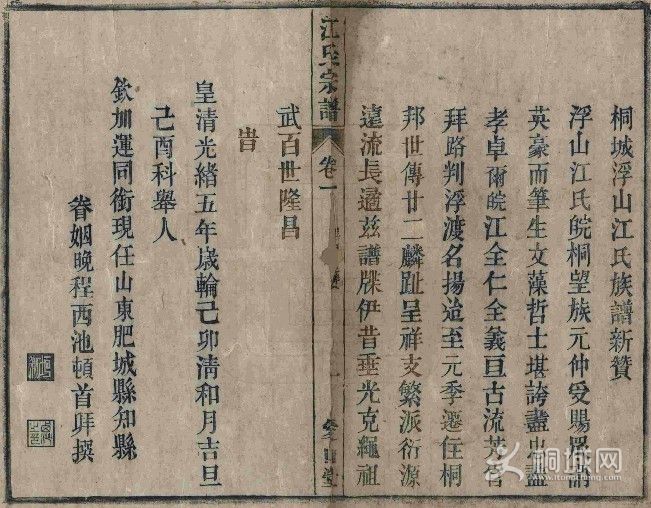 桐城浮山江氏族譜新贊
浮山江氏皖桐望族元仲受賜
英豪而筆生文藻哲士堪誇盡忠盡
孝卓爾皖江全仁全義亘古流芳
拜路判浮渡名揚迨至元季遷住桐
邦世傳廿二麟趾呈祥支繁派衍源
遠流長邇茲譜牒伊昔垂光克繩祖
江氏宗譜
卷一
堂
武百世隆昌
旹
皇清光緒五年歲輪己卯清和月吉旦
己酉科舉人
欽加運同銜現任山東肥城縣知縣
眷姻晚程西池頓首拜撰
桐城网